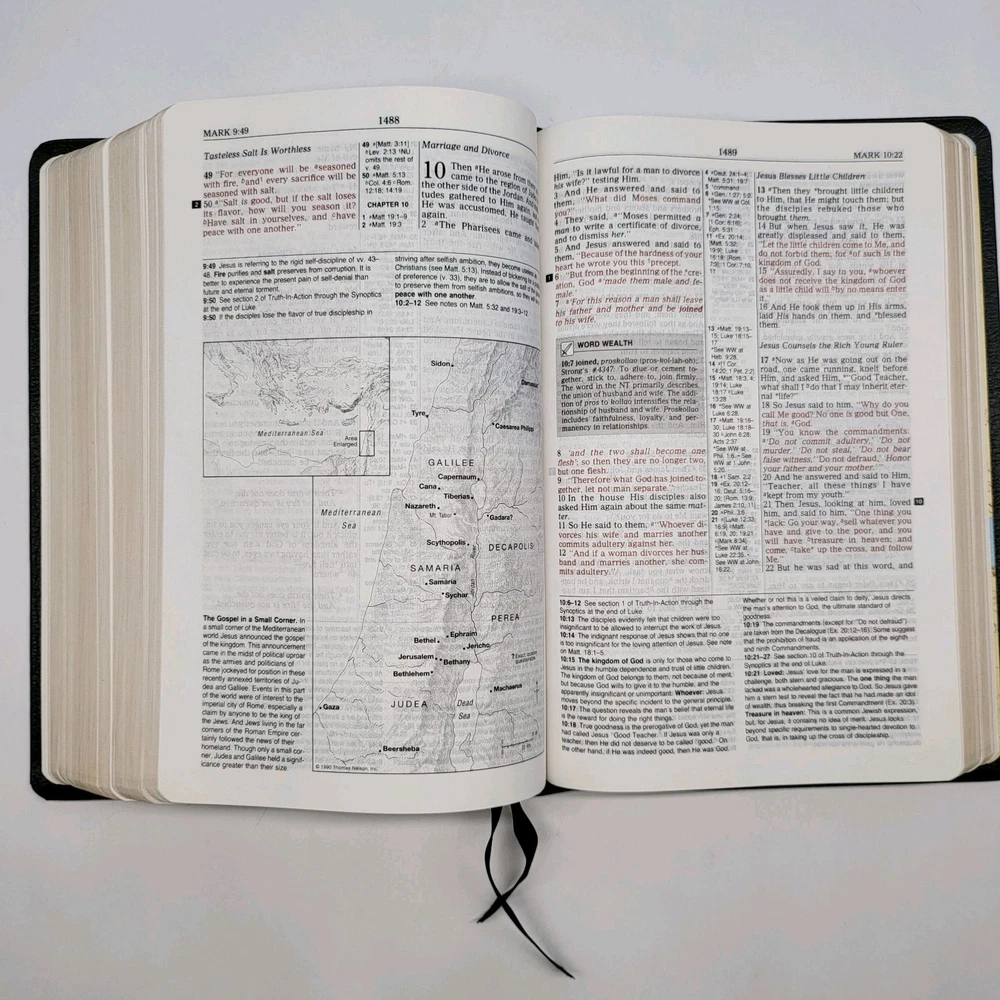 MARK 9:49
1488
Tasteless Salt Is Worthless
49 "For everyone will be ᵃseasoned
with fire, ᵇand¹ every sacrifice will be
seasoned with salt.
2 50 ᵃ"Salt is good, but if the salt loses
its flavor, how will you season it?
ᵇHave salt in yourselves, and ᶜhave
peace with one another."
49 ᵃ[Matt. 3:11]
ᵇLev. 2:13 ¹NU
omits the rest of
v. 49.
50 ᵃMatt. 5:13
ᵇCol. 4:6 ᶜRom.
12:18; 14:19
CHAPTER 10
1 ᵃMatt. 19:1–9
2 ᵃMatt. 19:3
Marriage and Divorce
10 Then ᵃHe arose from
came to the region of
the other side of the Jordan.
tudes gathered to Him again,
He was accustomed, He taught
again.
2 ᵃThe Pharisees came and
9:49 Jesus is referring to the rigid self-discipline of vv. 43–
48. Fire purifies and salt preserves from corruption. It is
better to experience the present pain of self-denial than
future and eternal torment.
9:50 See section 2 of Truth-In-Action through the Synoptics
at the end of Luke.
9:50 If the disciples lose the flavor of true discipleship in
striving after selfish ambition, they become useless
Christians (see Matt. 5:13). Instead of bickering for
of preference (v. 33), they are to allow the salt
to preserve them from selfish ambitions, so they will
peace with one another.
10:2–12 See notes on Matt. 5:32 and 19:3–12.
Mediterranean Sea
Area
Enlarged
Sidon
Damascus
Tyre
Caesarea Philippi
GALILEE
Capernaum
Cana
Tiberias
Mediterranean
Sea
Nazareth
Mt. Tabor
Gadara?
Scythopolis
DECAPOLIS
SAMARIA
Samaria
Sychar
PEREA
Ephraim
Bethel
Jericho
Jerusalem
Bethany
Bethlehem
? Exact location
questionable
Machaerus
JUDEA
Dead
Sea
Gaza
Beersheba
© 1990 Thomas Nelson, Inc.
The Gospel in a Small Corner. In
a small corner of the Mediterranean
world Jesus announced the gospel
of the kingdom. This announcement
came in the midst of political uproar
as the armies and politicians of
Rome jockeyed for position in these
recently annexed territories of Ju-
dea and Galilee. Events in this part
of the world were of interest to the
imperial city of Rome, especially a
claim by anyone to be the king of
the Jews. And Jews living in the far
corners of the Roman Empire cer-
tainly followed the news of their
homeland. Though only a small cor-
ner, Judea and Galilee held a signif-
icance greater than their size.
1489
MARK 10:22
Him, "Is it lawful for a man to divorce
his wife?" testing Him.
3 And He answered and said to
them, "What did Moses command
you?"
4 They said, ᵃ"Moses permitted a
man to write a certificate of divorce,
and to dismiss her."
5 And Jesus answered and said to
them, "Because of the hardness of your
heart he wrote you this ¹precept.
1 6 "But from the beginning of the ᵃcre-
ation, God ᵇ'made them male and fe-
male.'
7 ᵃ'For this reason a man shall leave
his father and mother and be joined
to his wife,
WORD WEALTH
10:7 joined, proskollao (pros-kol-lah-oh);
Strong's #4347: To glue or cement to-
gether, stick to, adhere to, join firmly.
The word in the NT primarily describes
the union of husband and wife. The addi-
tion of pros to kollao intensifies the rela-
tionship of husband and wife. Proskollao
includes faithfulness, loyalty, and per-
manency in relationships.
8 'and the two shall become one
flesh'; so then they are no longer two,
but one flesh.
9 "Therefore what God has joined to-
gether, let not man separate."
10 In the house His disciples also
asked Him again about the same mat-
ter.
11 So He said to them, ᵃ"Whoever di-
vorces his wife and marries another
commits adultery against her.
12 "And if a woman divorces her hus-
band and marries another, she com-
mits adultery."
4 ᵃDeut. 24:1–4;
Matt. 5:31; 19:7
5 ¹command
6 ᵃGen. 1:27; 5:2
*See WW at Col.
1:15.
7 ᵃGen. 2:24;
[1 Cor. 6:16];
Eph. 5:31
11 ᵃEx. 20:14;
[Matt. 5:32;
19:9]; Luke
16:18; [Rom.
7:3]; 1 Cor. 7:10,
11
13 ᵃMatt. 19:13–
15; Luke 18:15–
17
*See WW at
Heb. 9:28.
14 ᵃ[1 Cor.
14:20; 1 Pet. 2:2]
15 ᵃMatt. 18:3, 4;
19:14; Luke
18:17 ᵇLuke
13:28
16 *See WW at
Luke 6:28.
17 ᵃMatt. 19:16–
30; Luke 18:18–
30 ᵇJohn 6:28;
Acts 2:37
*See WW at
Phil. 1:6. • See
WW at 1 John
5:20.
18 ᵃ1 Sam. 2:2
19 ᵃEx. 20:12–
16; Deut. 5:16–
20; [Rom. 13:9;
James 2:10, 11]
20 ᵃPhil. 3:6
21 ᵃ[Luke 12:33;
16:9] ᵇMatt.
6:19, 20; 19:21
ᶜ[Mark 8:34]
*See WW at
Luke 22:35. •
See WW at John
16:22.
Jesus Blesses Little Children
13 ᵃThen they *brought little children
to Him, that He might touch them; but
the disciples rebuked those who
brought them.
14 But when Jesus saw it, He was
greatly displeased and said to them,
"Let the little children come to Me, and
do not forbid them; for ᵃof such is the
kingdom of God.
15 "Assuredly, I say to you, ᵃwhoever
does not receive the kingdom of God
as a little child will ᵇby no means enter
it."
16 And He took them up in His arms,
laid His hands on them, and *blessed
them.
Jesus Counsels the Rich Young Ruler
17 ᵃNow as He was going out on the
road, one came running, knelt before
Him, and asked Him, *"Good Teacher,
what shall I ᵇdo that I may inherit eter-
nal •life?"
18 So Jesus said to him, "Why do you
call Me good? No one is good but One,
that is, ᵃGod.
19 "You know the commandments:
ᵃ'Do not commit adultery,' 'Do not
murder,' 'Do not steal,' 'Do not bear
false witness,' 'Do not defraud,' 'Honor
your father and your mother.'"
20 And he answered and said to Him,
"Teacher, all these things I have
ᵃkept from my youth."
21 Then Jesus, looking at him, loved 10
him, and said to him, "One thing you
*lack: Go your way, ᵃsell whatever you
have and give to the poor, and you
will have ᵇtreasure in heaven; and
come, ᶜtake• up the cross, and follow
Me."
22 But he was sad at this word, and
10:6–12 See section 1 of Truth-In-Action through the
Synoptics at the end of Luke.
10:13 The disciples evidently felt that children were too
insignificant to be allowed to interrupt the work of Jesus.
10:14 The indignant response of Jesus shows that no one
is too insignificant for the loving attention of Jesus. See note
on Matt. 18:1–5.
10:15 The kingdom of God is only for those who come to
Jesus in the humble dependence and trust of little children.
The kingdom of God belongs to them, not because of merit,
but because God wills to give it to the humble, and the
apparently insignificant or unimportant. Whoever: Jesus
moves beyond the specific incident to the general principle.
10:17 The question reveals the man's belief that eternal life
is the reward for doing the right things.
10:18 True goodness is the prerogative of God, yet the man
had called Jesus "Good Teacher." If Jesus was only a
teacher, then He did not deserve to be called "good." On
the other hand, if He was indeed good, then He was God.
Whether or not this is a veiled claim to deity, Jesus directs
the man's attention to God, the ultimate standard of
goodness.
10:19 The commandments (except for "Do not defraud")
are taken from the Decalogue (Ex. 20:12–16). Some suggest
that the prohibition of fraud is an application of the eighth
and ninth Commandments.
10:21–27 See section 10 of Truth-In-Action through the
Synoptics at the end of Luke.
10:21 Loved: Jesus' love for the man is expressed in a
challenge, both stern and gracious. The one thing the man
lacked was a wholehearted allegiance to God. So Jesus gave
him a stern test to reveal the fact that he had made an idol
of wealth, thus breaking the first Commandment (Ex. 20:3).
Treasure in heaven: This is a common Jewish expression,
but, for Jesus, it contains no idea of merit. Jesus looks
beyond specific requirements to single-hearted devotion to
God, that is, in taking up the cross of discipleship.